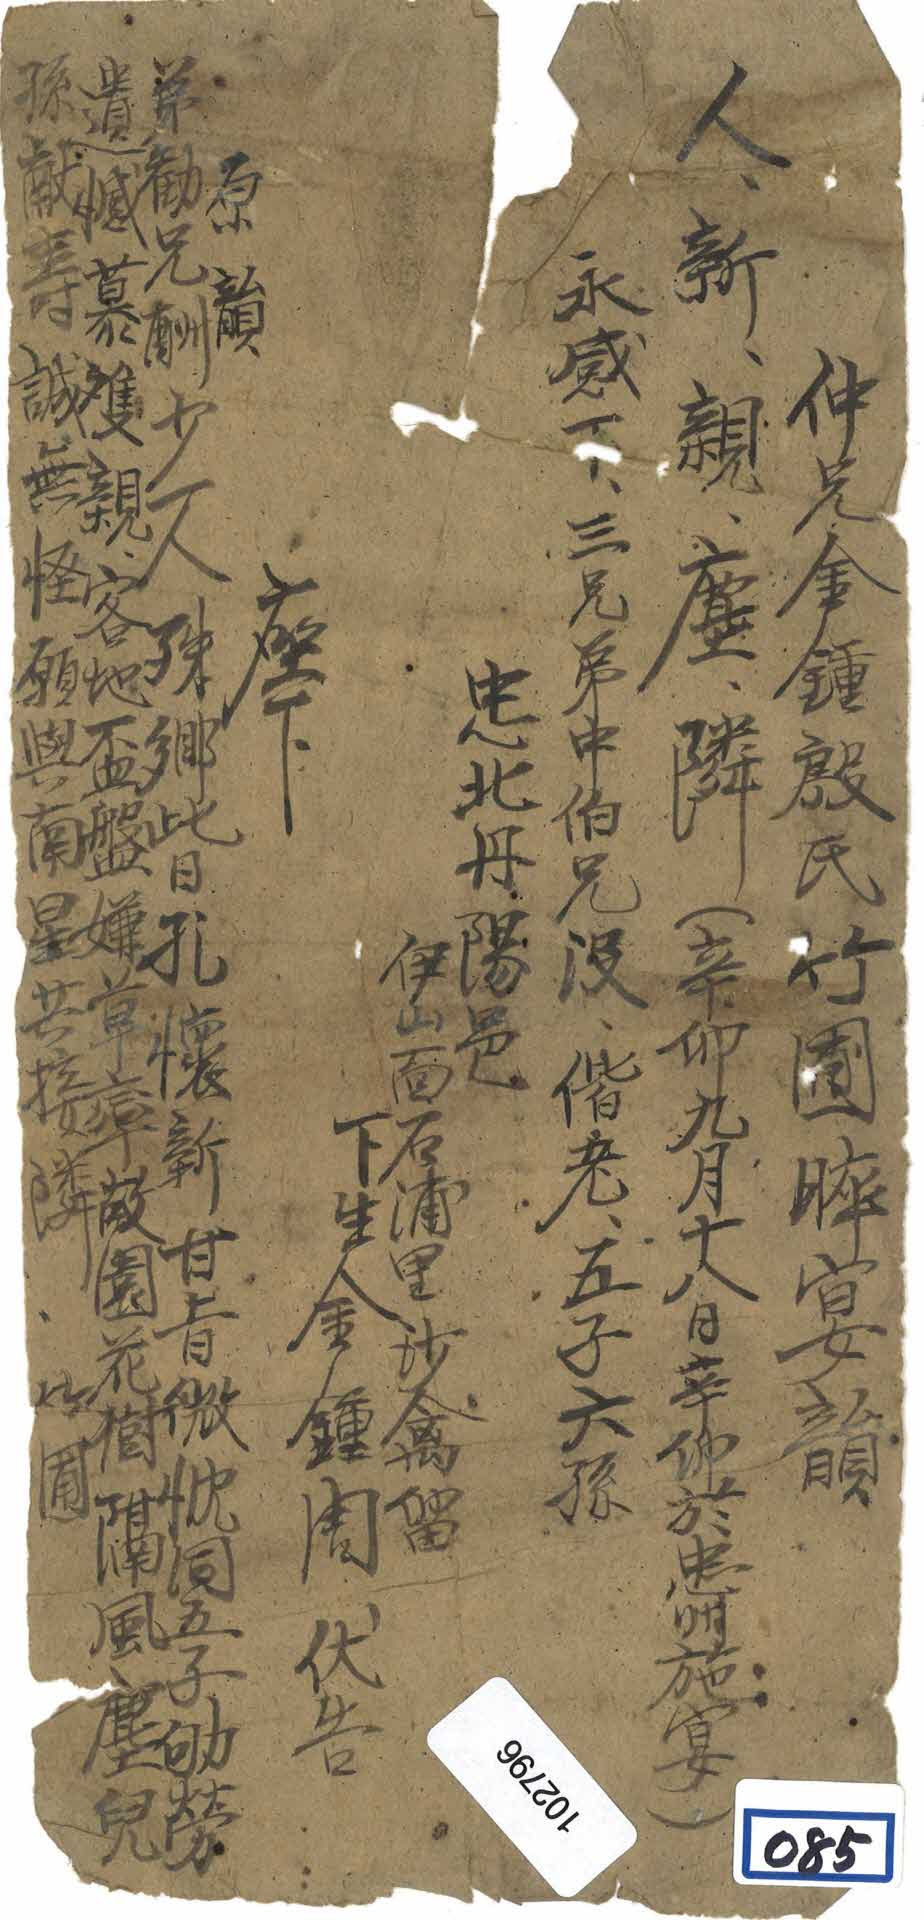 仲兄金鍾殷氏竹圃晬宴韻
人、新、親、塵、隣(辛卯九月十八日辛卯於忠州施宴)
永感下、三兄弟中伯兄沒、偕老、五子六孫
忠北丹陽邑
伊山面石浦里沙禽留
下生金鍾周 伏告
座下
原韻
弟勸兄酬少一人殊鄉此日孔懷新甘旨微忱同五子劬勞
遺憾慕雙親、客地盃盤嫌草草故園花樹隔風塵兒
孫獻壽誠無怪願與南星共接隣 、竹圃
102796
085